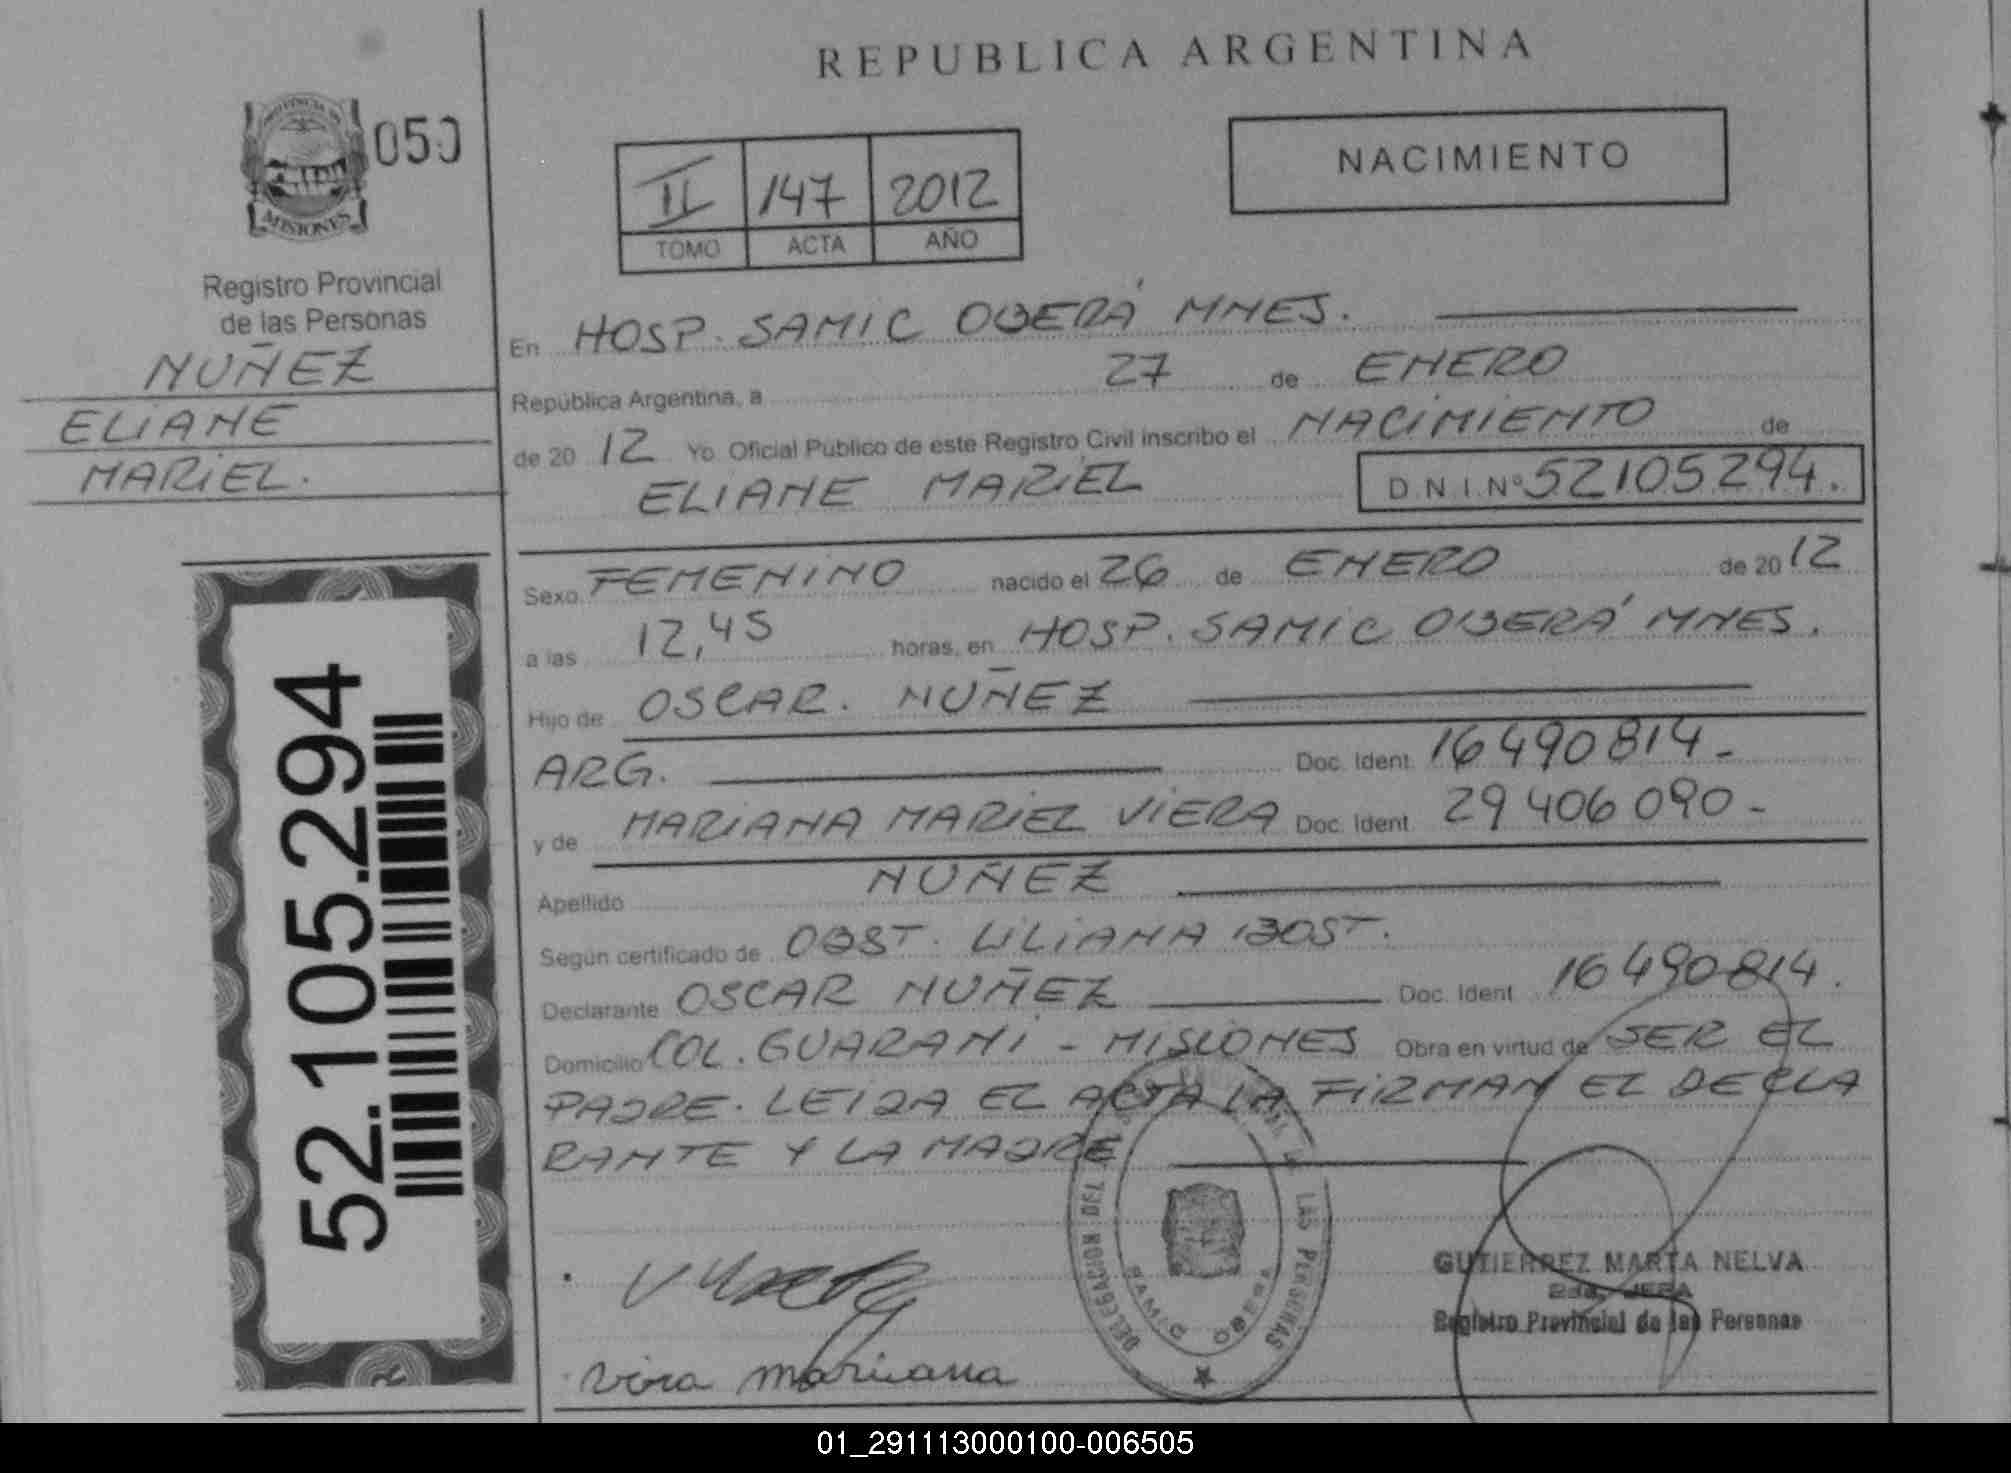 REPUBLICA ARGENTINA
PROVINCIA DE
MISIONES
050
Registro Provincial
de las Personas
NUÑEZ
ELIANE
MARIEL.
52.105.294
II 147 2012
TOMO ACTA AÑO
NACIMIENTO
En HOSP. SAMIC OBERÁ MNES.
República Argentina, a 27 de ENERO
de 20 12 Yo Oficial Público de este Registro Civil inscribo el NACIMIENTO de
ELIANE MARIEL D.N.I.Nº 52105294.
Sexo FEMENINO nacido el 26 de ENERO de 20 12
a las 12,45 horas, en HOSP. SAMIC OBERÁ MNES.
Hijo de OSCAR. NUÑEZ
ARG. Doc. Ident. 16490814-
y de MARIANA MARIEL VIERA Doc. Ident. 29406090-
Apellido NUÑEZ
Según certificado de OBST. LILIANA BOST.
Declarante OSCAR NUÑEZ Doc. Ident. 16490814.
Domicilio COL. GUARANI - MISIONES Obra en virtud de SER EL
PADRE. LEIDA EL ACTA LA FIRMAN EL DECLA
RANTE Y LA MADRE
DELEGACION DEL LAS PERSONAS
SAMIC OBERA
GUTIERREZ MARTA NELVA
2da. JEFA
Registro Provincial de las Personas
vira mariana
01_291113000100-006505